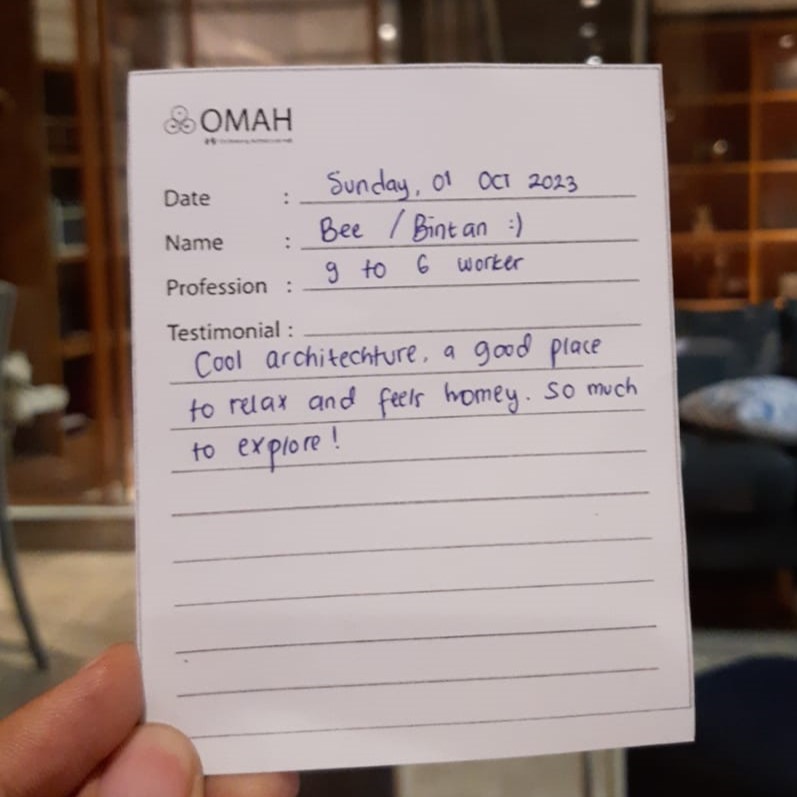 OMAH
Date : Sunday, 01 OCT 2023
Name : Bee / Bintan :)
Profession : 9 to 6 worker
Testimonial :
Cool architechture, a good place
to relax and feels homey. So much
to explore!